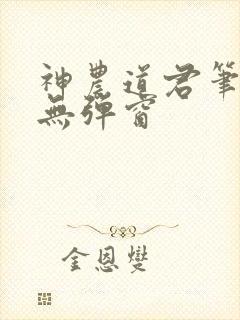 神農道君筆
無彈窗
金恩燮